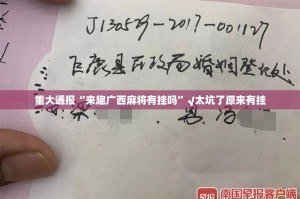 J130529-2017-001127
巨鹿县民政局婚姻登记处
重大通报“来趣广西麻将有挂吗”√太坑了原来有挂
南国早报客户端